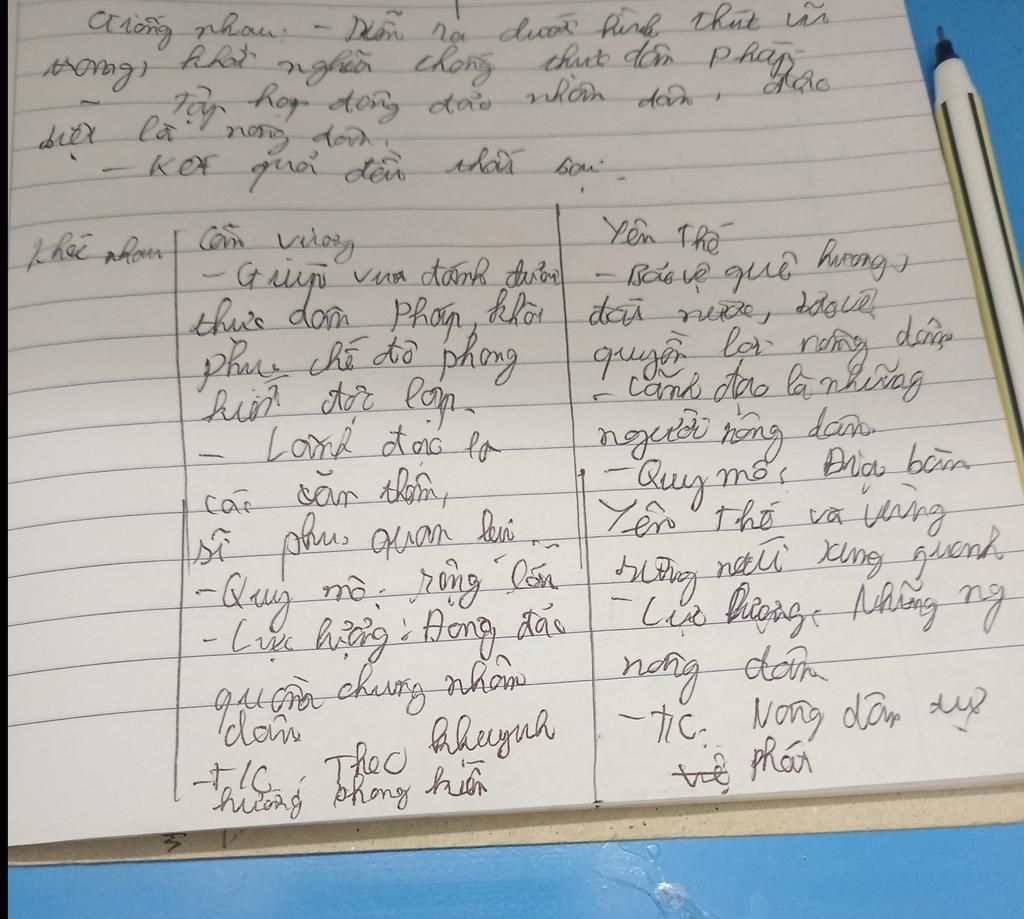 Giống nhau: - Diễn ra dưới hình thức vũ
trang, khởi nghĩa chống thực dân Pháp
- Tập hợp đông đảo nhân dân, đặc
biệt là nông dân.
- Kết quả đều thất bại.
Khác nhau
Cần vương
- Giúp vua đánh đuổi
thực dân Pháp, khôi
phục chế độ phong
kiến độc lập.
- Lãnh đạo là
các văn thân,
sĩ phu, quan lại.
- Quy mô: rộng lớn
- Lực lượng: Đông đảo
quần chúng nhân
dân
- T/C: Theo khuynh
hướng phong kiến
Yên Thế
- Bảo vệ quê hương,
đất nước, bảo vệ
quyền lợi nông dân
- Lãnh đạo là những
người nông dân
- Quy mô: Địa bàn
Yên Thế và vùng
rừng núi xung quanh
- Lực lượng: Những ng
nông dân
- T/C: Nông dân tự
phát